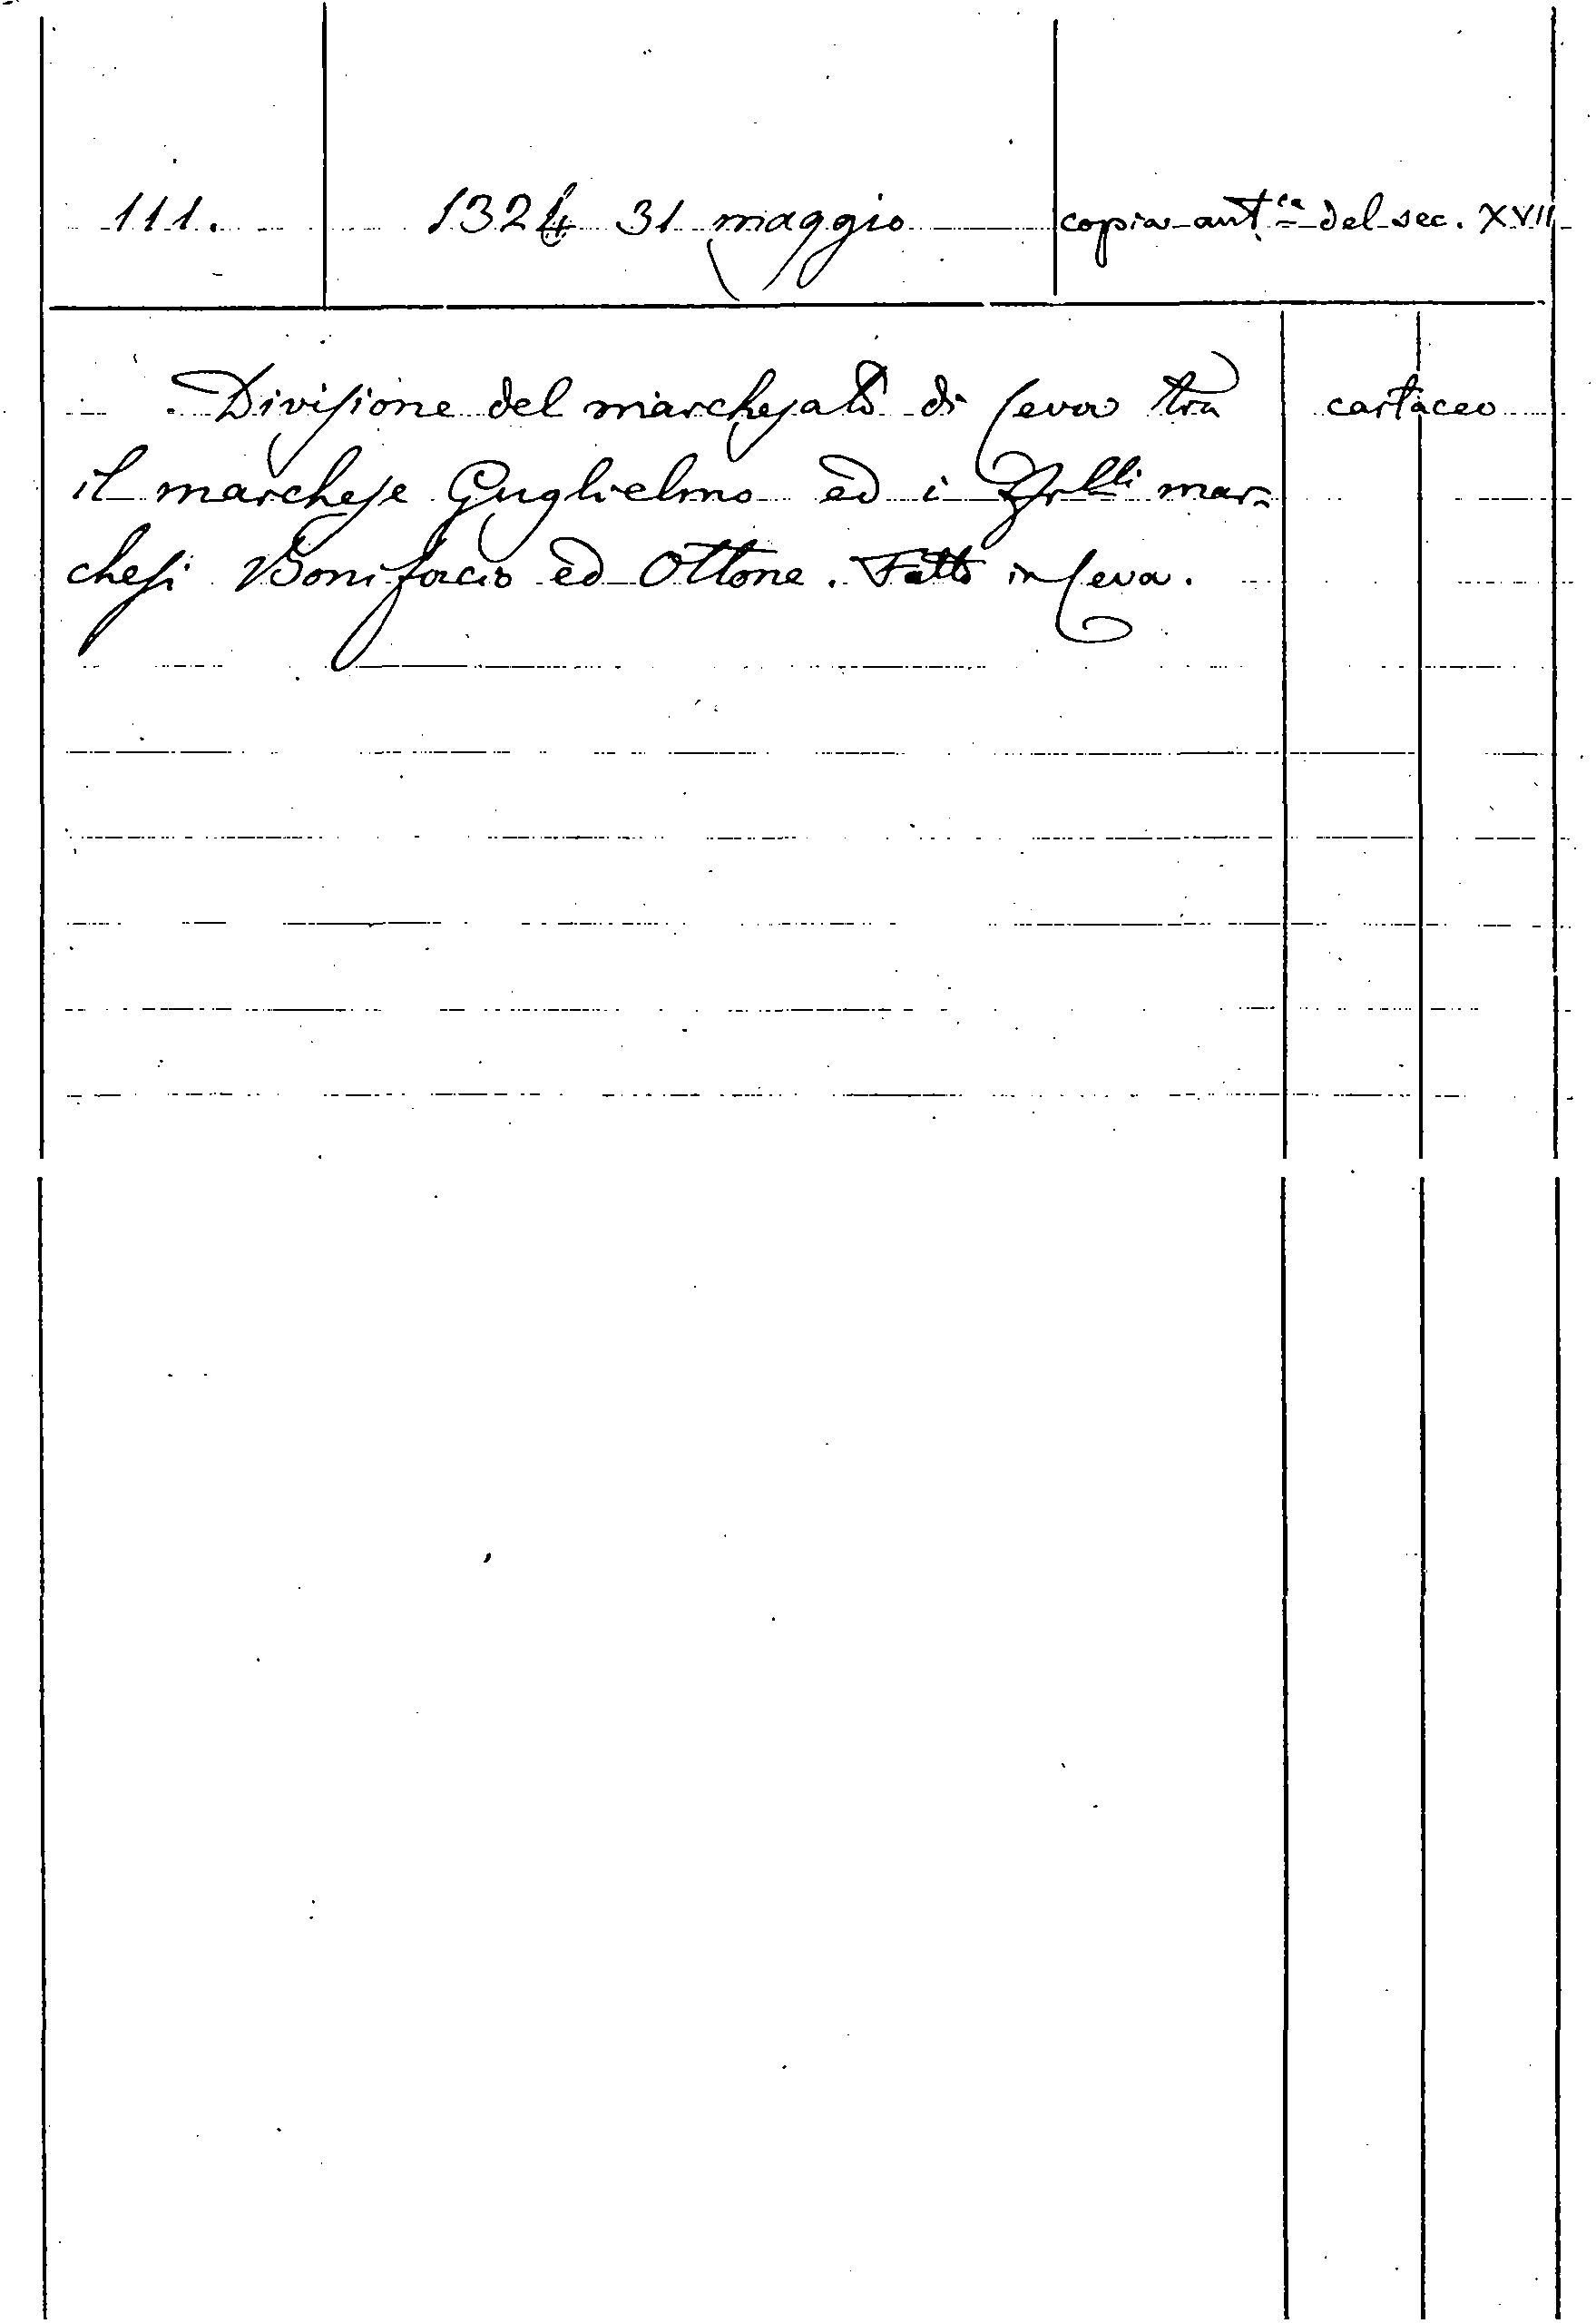 111. 1324 31 maggio copia ant.ca del sec. XVII
Divisione del marchesato di Ceva tra cartaceo
il marchese Guglielmo ed i frlli mar-
chesi Bonifacio ed Ottone. Fatto in Ceva.